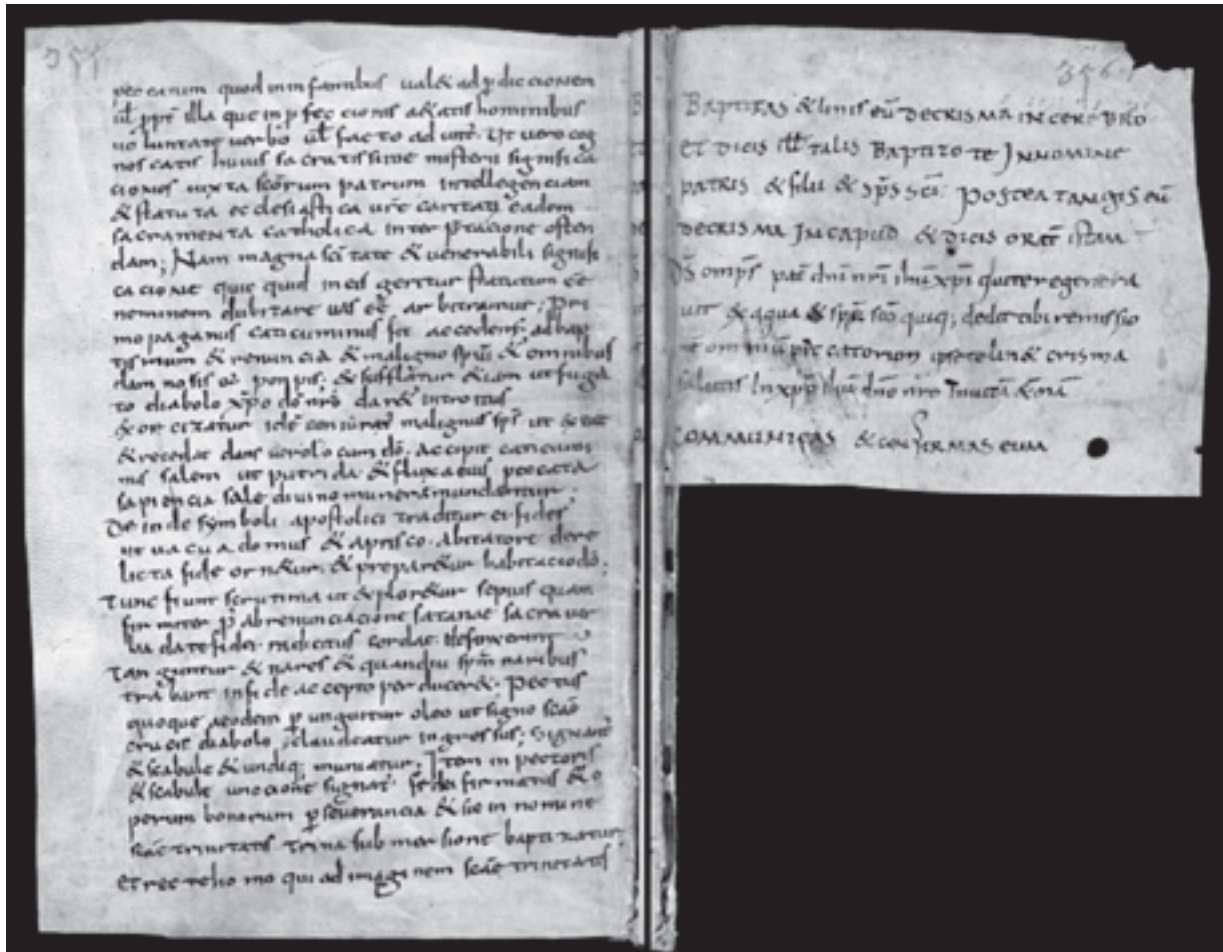 355
peccatum quod in infantibus ual& ad p̄diccionem
ul̄ ppt̄ illa que in p̄feccionis a&atis hominibus
uoluntate uerbo ul̄ facto ad
nos catis huius sacratissime misterii significa
cionis iuxta scōrum patrum intellegenciam
& statuta ecclesiastica ur̄e caritati eadem
sacramenta catholica inter p̄tacione osten
dam; Nam magna sc̄i tate & uenerabili signifi
cacione quic quid in eis geritur statutum ēē
neminem dubitare arbitramur; Pri
mo paganus caticuminus fit accedens ad bap
tismum & renunciat & maligno sp̄u & omnibus
damnosis pompis; & sufflatur &iam ut fuga
to diabolo xp̄o dō nr̄o dar& introitus
& orcizatur malignus sp̄s ut & eat
& recedat dans uerolo cum dō. Accipit caticumi
nus salem ut putrida & fluxa eius peccata
sapiencia sale diuino munera mundentur;
De inde symboli apostolici traditur ei fides
ut uacua domus & a prisco abitatore dere
licta fide orn&ur. & prepar&ur habitacio dō;
Tunc fiunt scrutinia ut explor&ur sepius quam
firmiter p̄ abrenunciacione satanae sacra uer
ba date fidei radicitus cordae defixerint
Tanguntur & nares & quandiu sp̄m naribus
trabant in fide accepto perducer&. Pectus
quoque aeodem p̄ unguitur oleo ut signo scāe
crucis diabolo claudeatur ingressus; Signant̄
& scabule & undiq; muniatur; Item in pectoris
& scabule unccione signat̄ fidei firmatus & o
perum bonorum p̄seuerancia & sic in nomine
scāe trinitatis trina submersione baptizatur
Et rec te homo qui ad imaginem scāe trinitatis
356
Baptizas & linis eū decrisma in cerebro
et dicis ill̄ talis Baptizo te In nomine
patris & filii & sp̄s sc̄i. Postea tangis eū
decrisma In capud & dicis orat̄ istam
Dš omp̄s pat̄ dn̄i nr̄i ihū xp̄i qui te regenera
uit & aqua & sp̄u sc̄o quiq; dedit tibi remissio
nē omniū peccatorum ipse te lin& crisma
salutis In xp̄o ihū dn̄o nr̄o In uitā &nā
communicas & confirmas eum